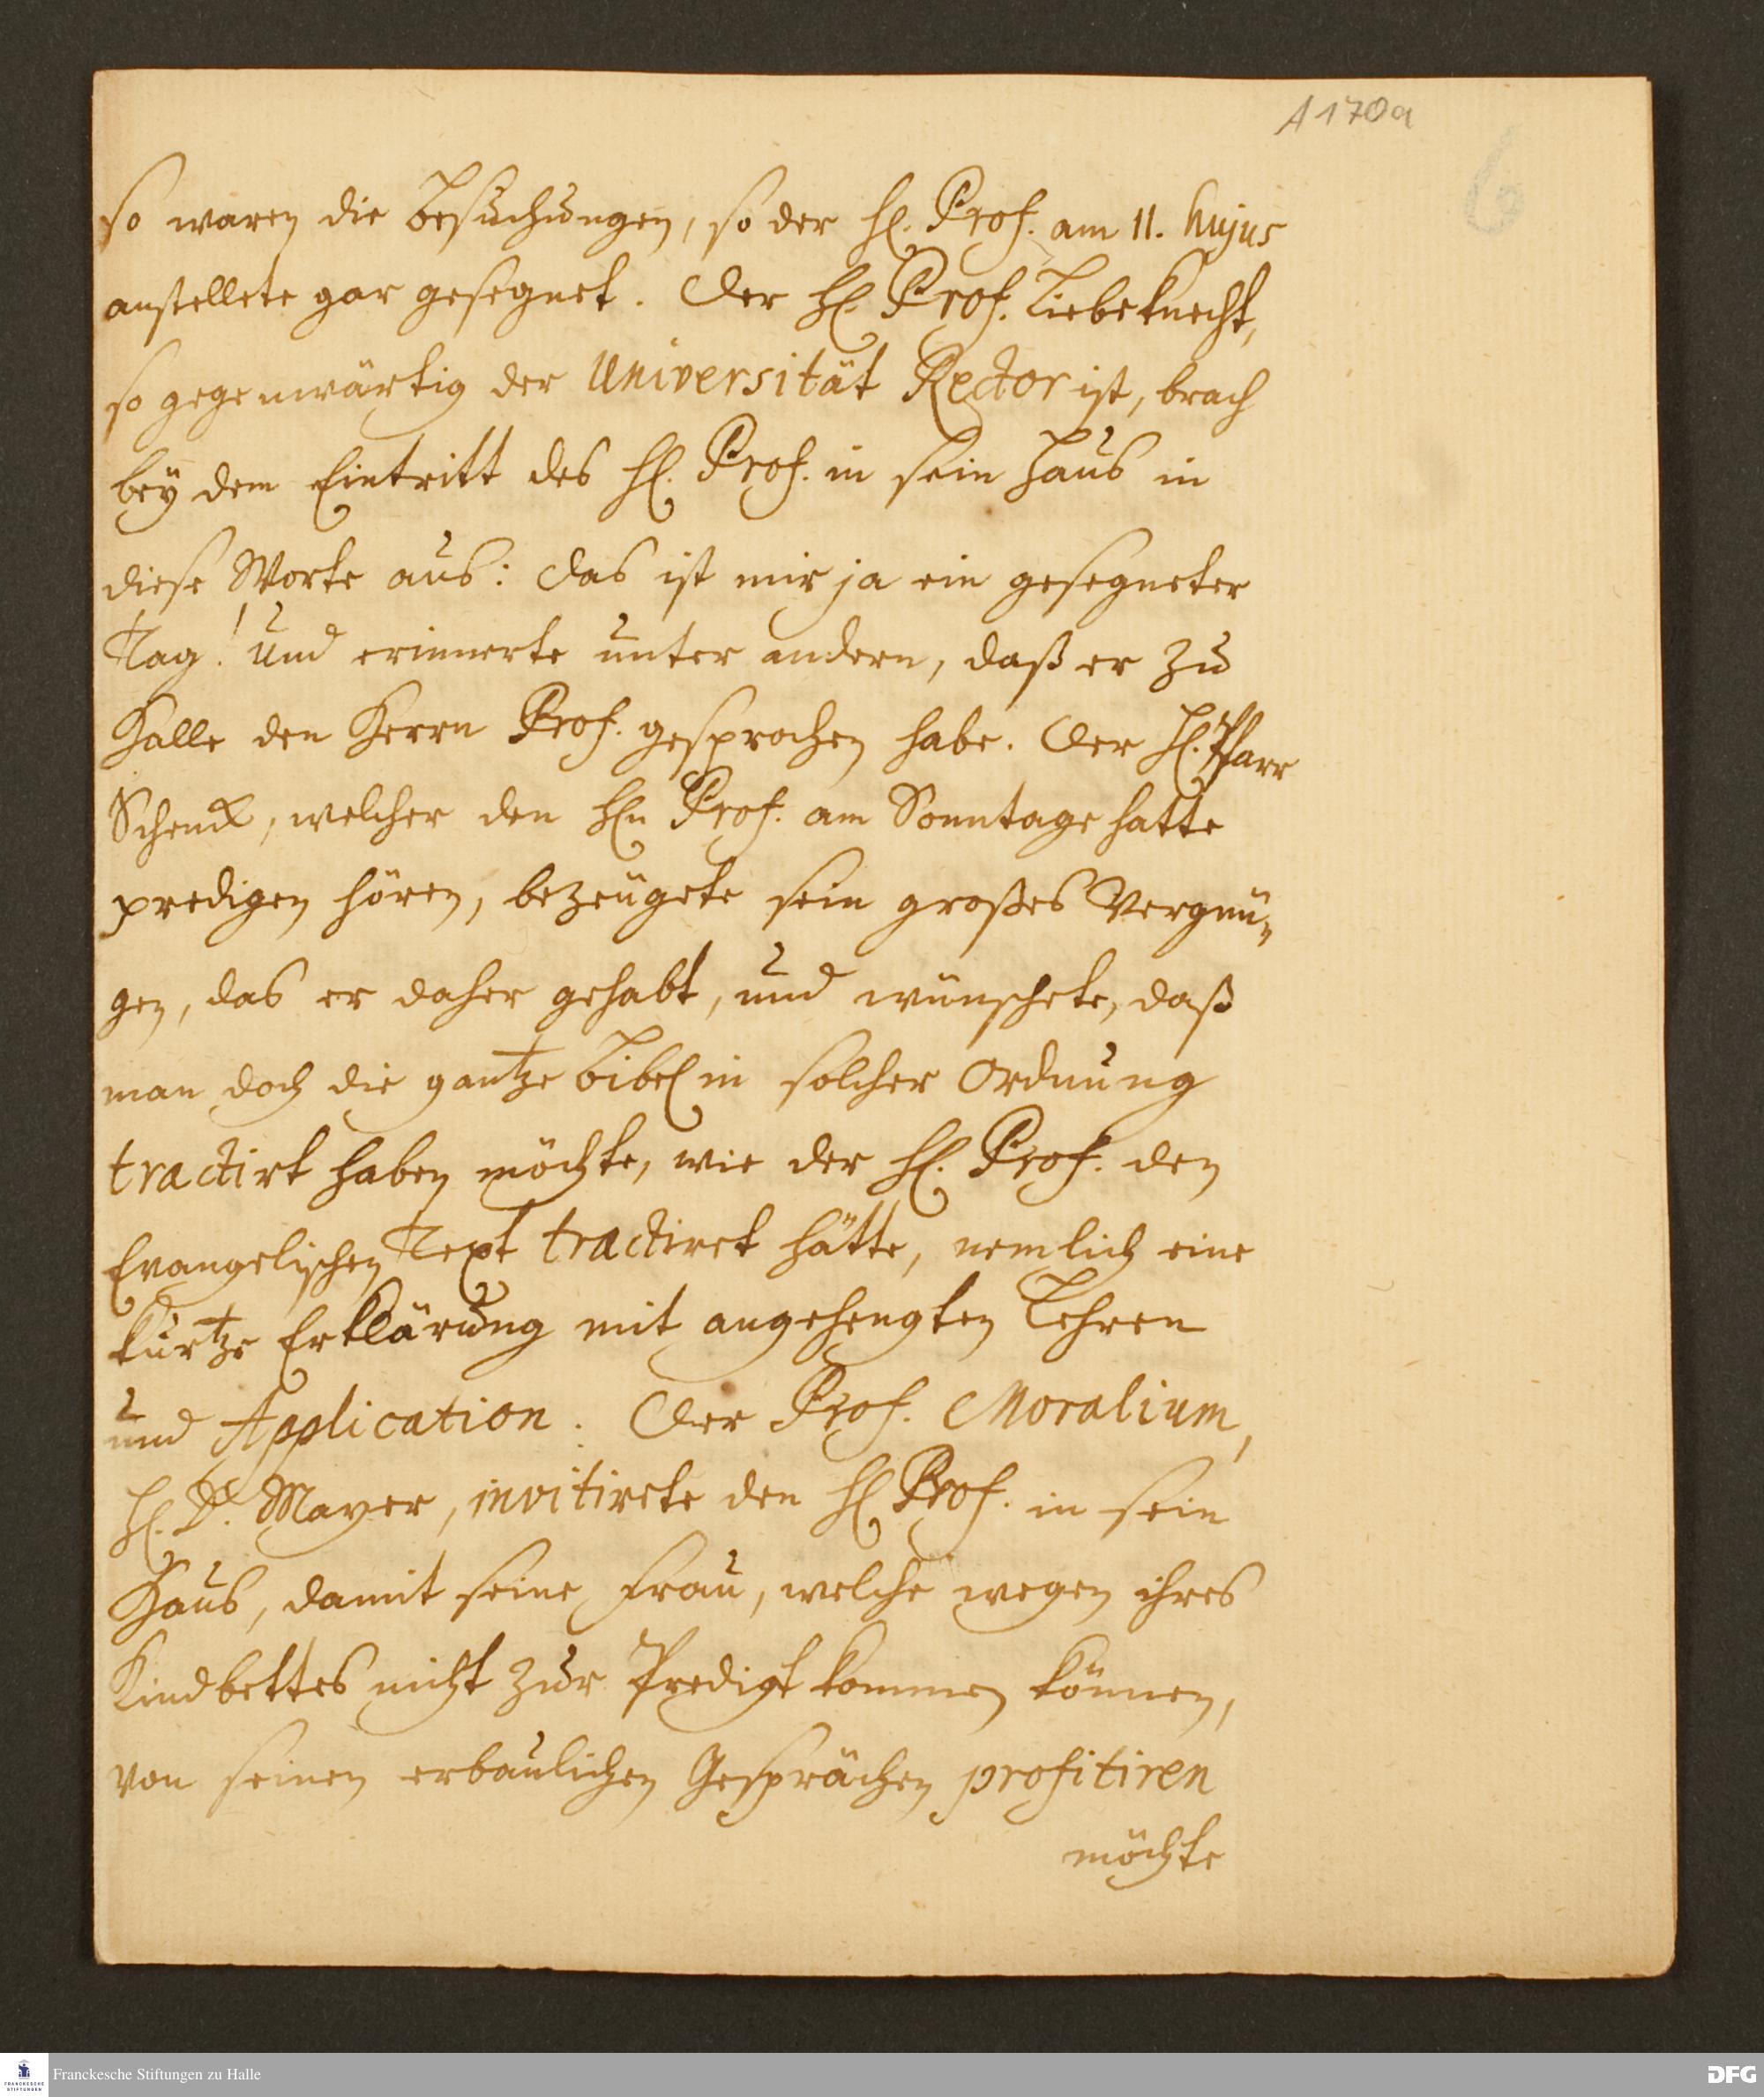 A 170a
6
so waren die Besuchungen, so der H. Prof. am 11. hujus
anstellete gar gesegnet. Der H. Prof. Liebeknecht,
so gegenwärtig der Universität Rector ist, brach
bey dem Eintritt des H. Prof. in sein Hauß in
diese Worte aus: Das ist mir ja ein gesegneter
Tag! Und erinnerte unter andern, daß er zu
Halle den Herrn Prof. gesprochen habe. Der H. Pfarr
Schenck, welcher den Hn Prof. am Sonntage hatte
predigen hören, bezeugete sein großes Vergnü-
gen, das er daher gehabt, und wünschete, daß
man doch die gantze Bibel in solcher Ordnung
tractirt haben möchte, wie der H. Prof. den
Evangelischen Text tractiret hätte, nemlich eine
kurtze Erklärung mit angehengten Lehren
und Application. Der Prof. Moralium,
H. D. Mayer, invitirete den H Prof. in sein
Haus, damit seine Frau, welche wegen ihres
Kindbettes nicht zur Predigt kommen können,
von seinen erbaulichen Gesprächen profitiren
möchte
FRANCKESCHE
STIFTUNGEN
Franckesche Stiftungen zu Halle
DFG